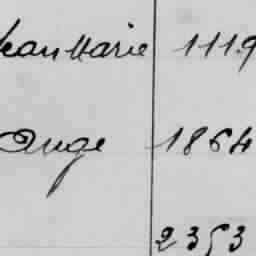 Jean Marie 1119
Ange 1864
2353